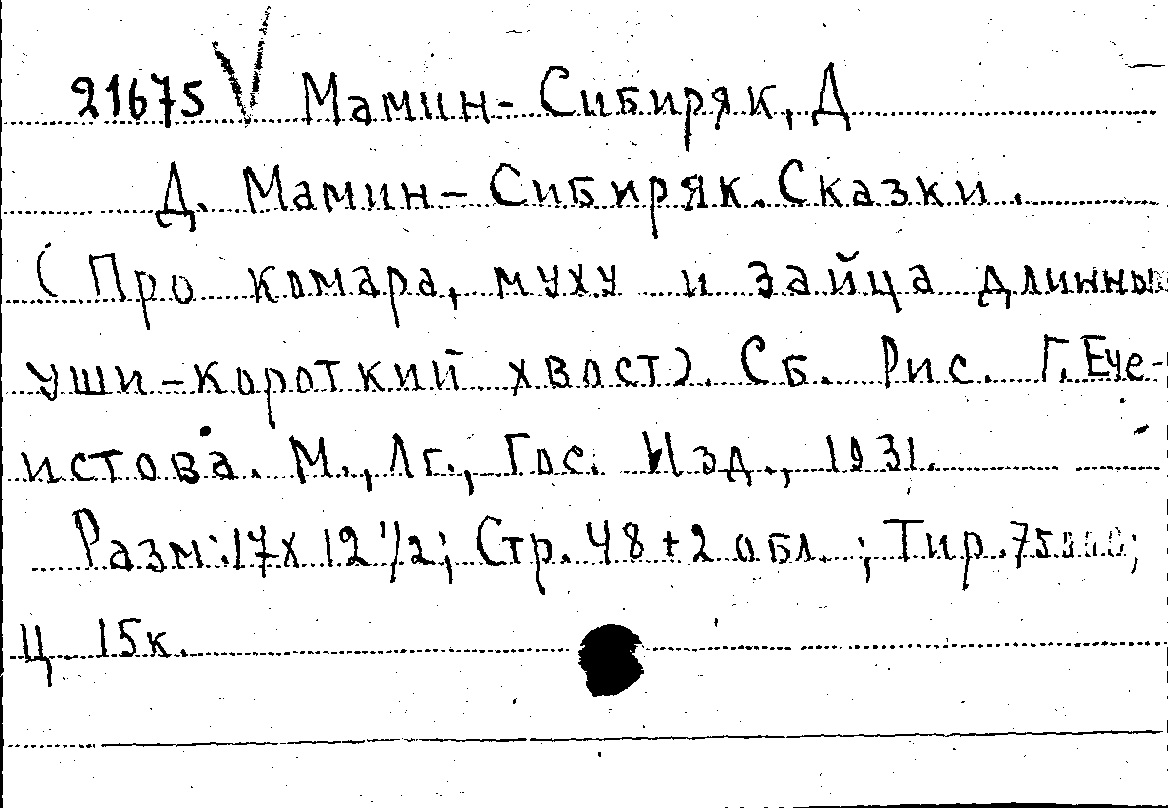 21675 V Мамин-Сибиряк, Д
Д. Мамин-Сибиряк. Сказки.
(Про комара, муху и зайца длинные
уши-короткий хвост). Сб. Рис. Г. Ече-
истова. М., Лг., Гос. Изд., 1931.
Разм: 17х12 1/2; Стр. 48+2 обл.; Тир. 75000;
Ц 15к.